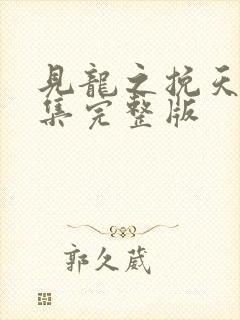 見龍之挽天
集完整版
郭久葳